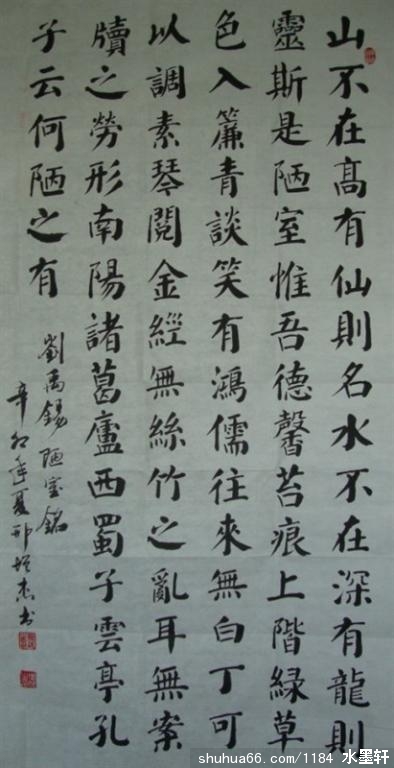 山不在髙有仙則名水不在深有龍則
靈斯是陋室惟吾德馨苔痕上階緑草
色入簾青談笑有鴻儒往來無白丁可
以調素琴閱金經無絲竹之亂耳無案
牘之勞形南陽諸葛廬西蜀子雲亭孔
子云何陋之有
劉禹錫陋室銘
辛卯年夏邢书
shuhua66.com/1184 水墨轩